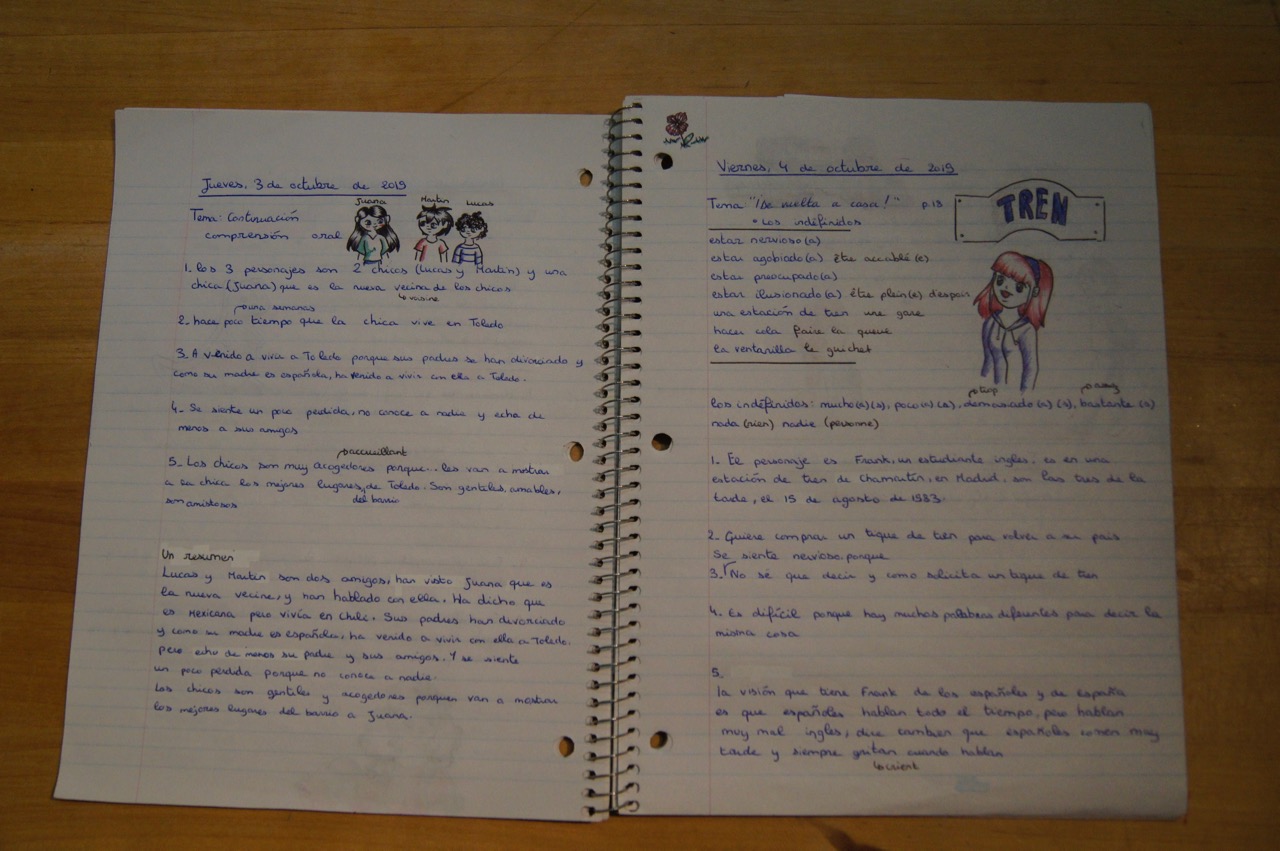 Jueves, 3 de octubre de 2019
Juana Martin Lucas
Tema: Continuación
comprensión oral
1. Los 3 personajes son 2 chicos (Lucas y Martin) y una
chica (Juana) que es la nueva vecina de los chicos
↳ voisine
una semanas
2. hace poco tiempo que la chica vive en Toledo
3. A venido a vivir a Toledo porque sus padres se han divorciado y
como su madre es española, ha venido a vivir con ella a Toledo.
4. Se siente un poco perdida, no conoce a nadie y echa de
menos a sus amigos
accueillant
5. Los chicos son muy acogedores porque... les van a mostrar
a la chica los mejores lugares de Toledo. Son gentiles, amables,
son amistosos
del barrio
Un resumen
Lucas y Martin son dos amigos, han visto Juana que es
la nueva vecine, y han hablado con ella. Ha dicho que
es Mexicana pero vivía en Chile. Sus padres han divorciado
y como su madre es española, ha venido a vivir con ella a Toledo.
pero echo de menos su padre y sus amigos. Y se siente
un poco perdida porque no conoce a nadie.
Los chicos son gentiles y acogedores porquen van a mostrar
los mejores lugares del barrio a Juana.
Viernes, 4 de octubre de 2019
Tema "¡De vuelta a casa!" p.18
• Los indéfinidos
TREN
estar nervioso(a)
estar agobiado(a) être accablé(e)
estar preocupado(a)
estar ilusionado(a) être plein(e) d'espoir
una estación de tren une gare
hacer cola faire la queue
la ventanilla le guichet
trop assez
los indéfinidos: mucho(a)(s), poco(a)(s), demasiado(a)(s), bastante(s)
nada (rien) nadie (personne)
1. El personaje es Frank, un estudiante ingles. es en una
estación de tren de Chamartín, en Madrid, son las tres de la
tarde, el 15 de agosto de 1983.
2. Quiere comprar un tique de tren para volver a su pais
Se siente nervioso porque
3. No sé que decir y como solicita un tique de tren
4. Es difícil porque hay muchas palabras diferentes para decir la
misma cosa
5.
la visión que tiene Frank de los españoles y de españa
es que españoles hablan todo el tiempo, pero hablan
muy mal ingles, dice tambien que españoles comen muy
tarde y siempre gritan cuando hablan
↳ crient